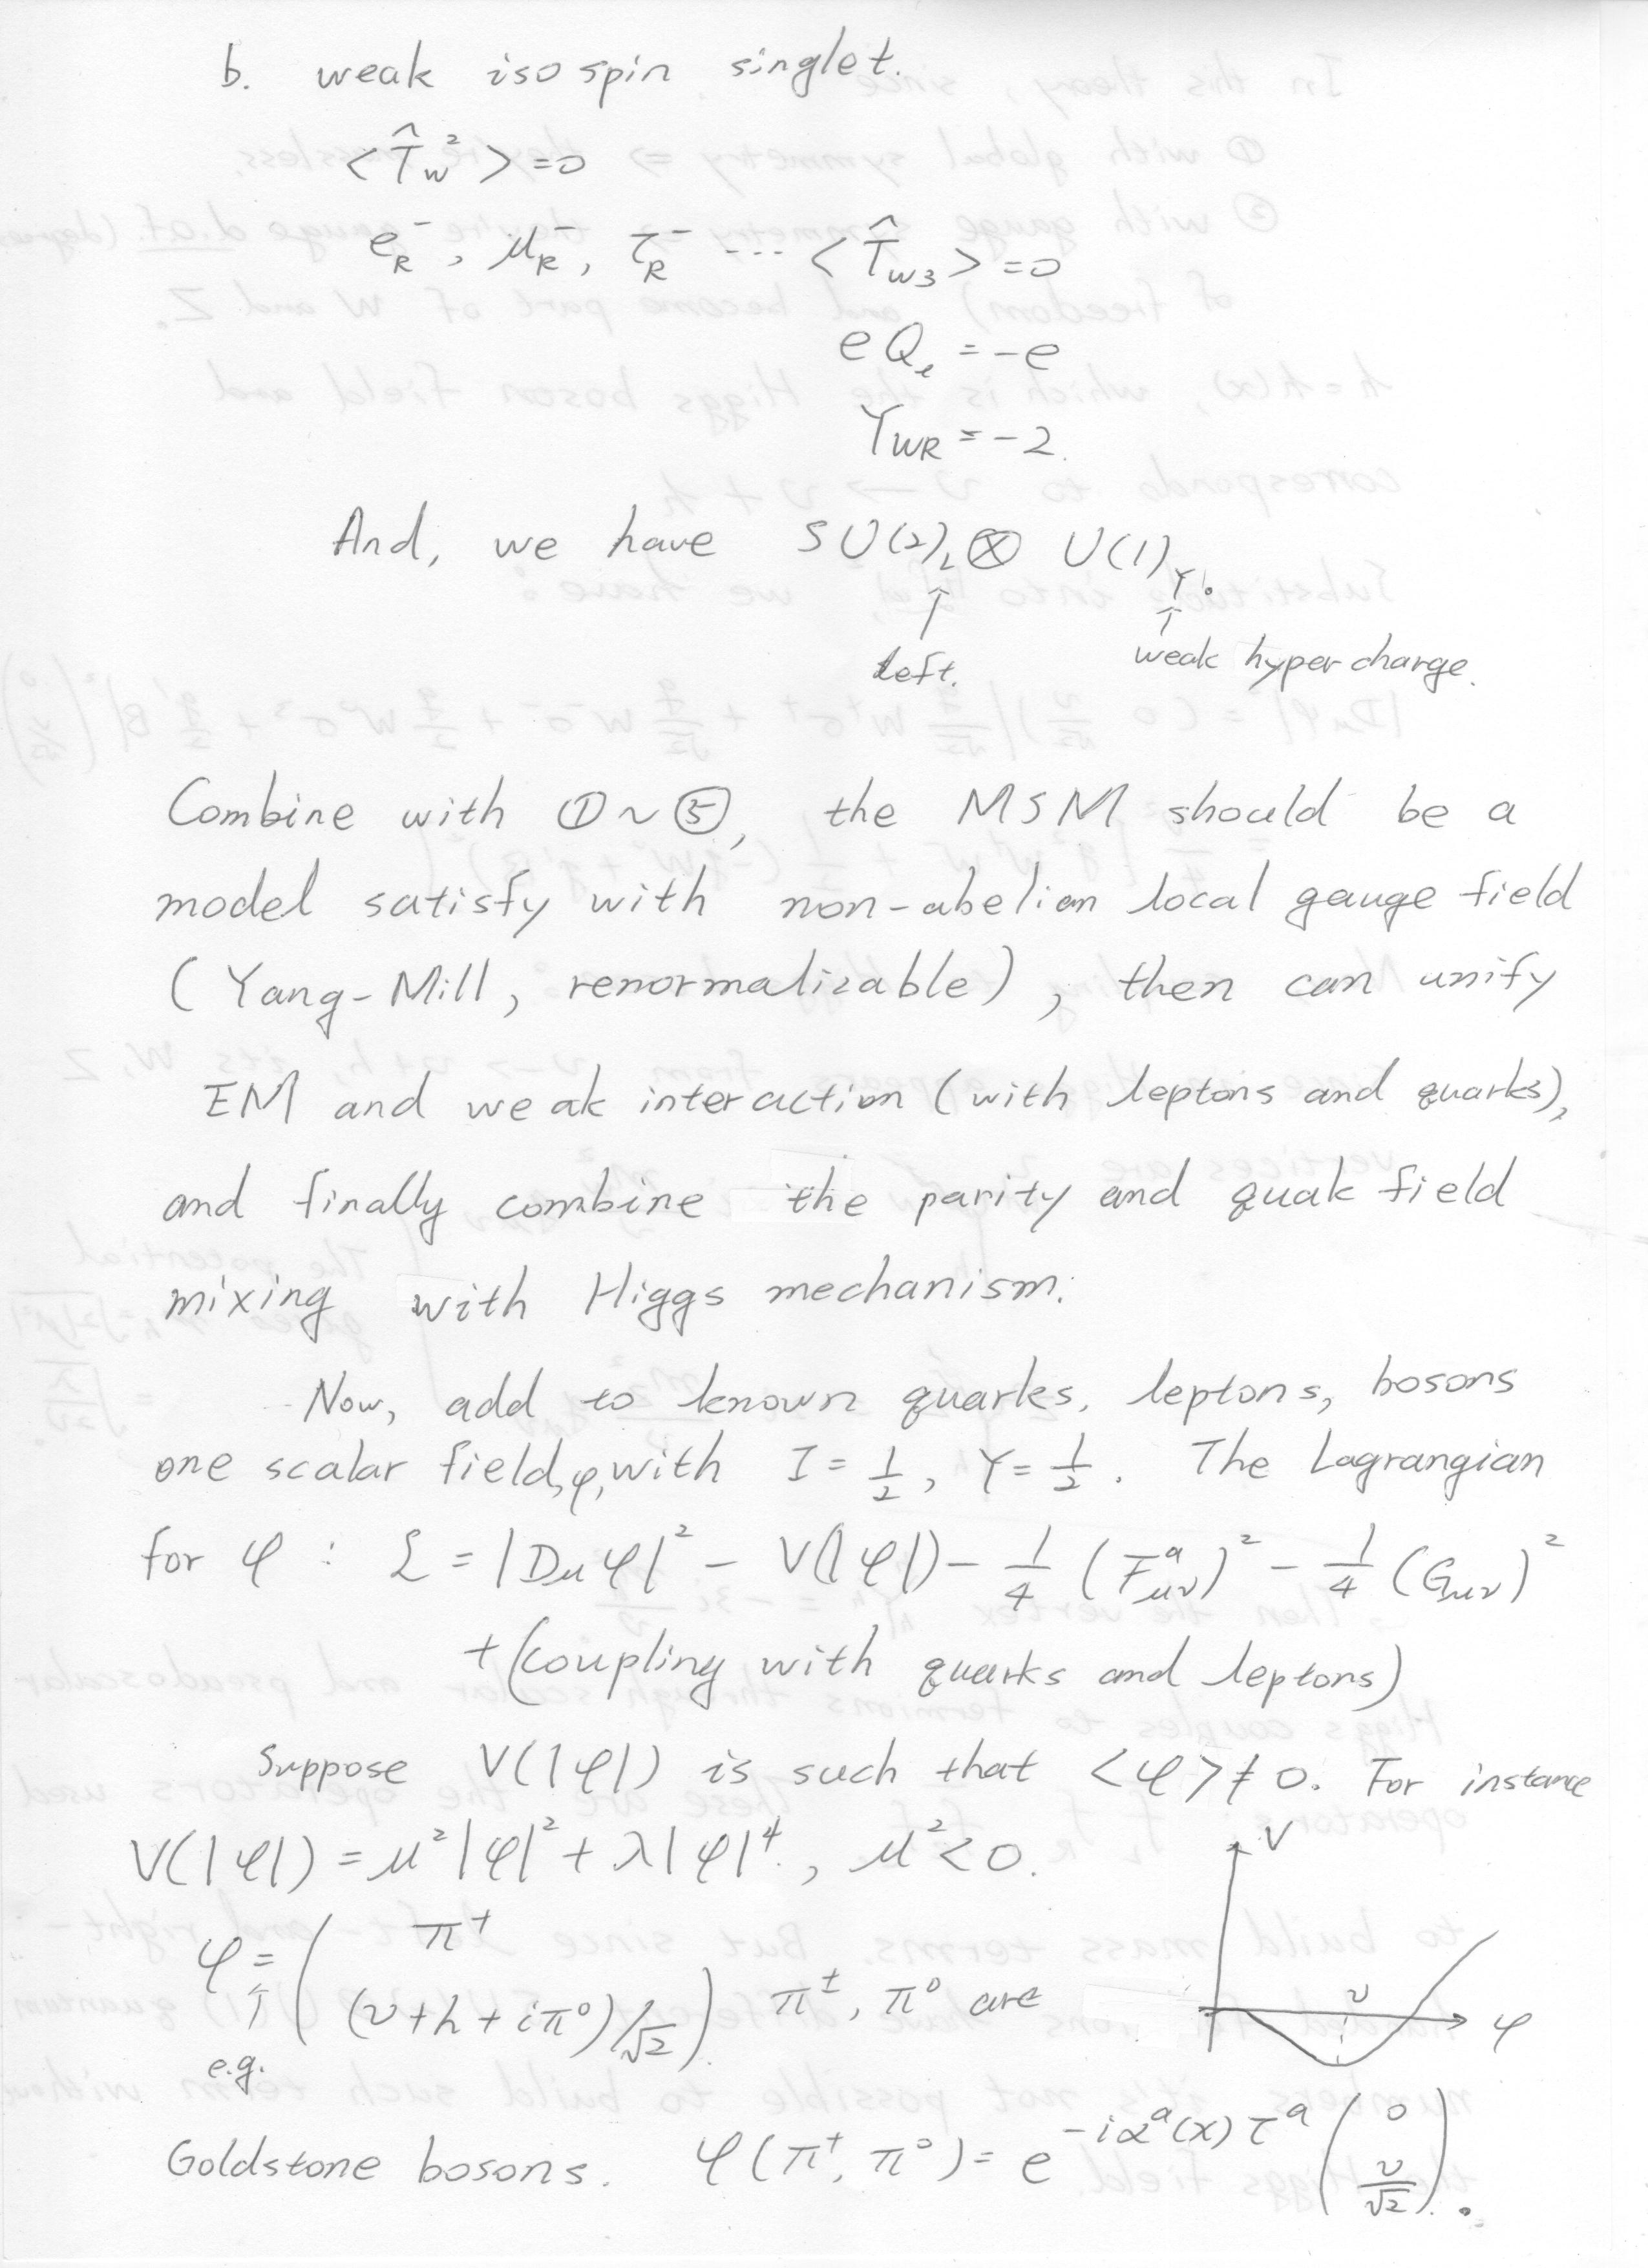 b. weak isospin singlet.
<T̂_w²>=0
e_R⁻, μ_R⁻, τ_R⁻ --- <T̂_w3>=0
eQ_e=-e
Y_WR=-2.
And, we have SU(2)_L⊗ U(1)_Y.
↑ ↑
Left. weak hypercharge.
Combine with ①~⑤, the MSM should be a
model satisfy with non-abelian local gauge field
(Yang-Mill, renormalizable), then can unify
EM and weak interaction (with leptons and quarks),
and finally combine the parity and quak field
mixing with Higgs mechanism.
Now, add to known quarks, leptons, bosons
one scalar field, φ, with I=1/2, Y=1/2. The Lagrangian
for φ : L=|D_μφ|²-V(|φ|)-1/4(F^a_μν)²-1/4(G_μν)²
+(coupling with quarks and leptons)
Suppose V(|φ|) is such that <φ>≠0. For instance
V(|φ|)=μ²|φ|²+λ|φ|⁴, μ²<0.
V
φ=(π⁺ (v+h+iπ⁰)/√2). π^±, π⁰ are
↑
e.g.
v
φ
Goldstone bosons. φ(π⁺, π⁰)=e^(-iα^a(x)τ^a)(0 v/√2).